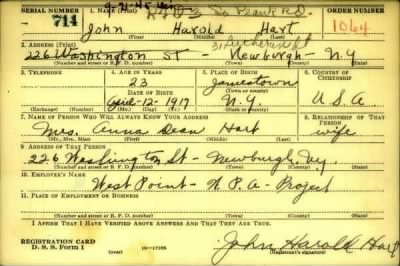 SERIAL NUMBER 1. NAME (Print) ORDER NUMBER
9-21-45
711 John Harold Hart 1064
(First) (Middle) (Last)
2. ADDRESS (Print)
226 Washington ST Newburgh- N.Y
(Number and street or R. F. D. number) (Town) (County) (State)
3. TELEPHONE 4. AGE IN YEARS 5. PLACE OF BIRTH 6. COUNTRY OF CITIZENSHIP
23 Jamestown
DATE OF BIRTH (Town or county)
April-12-1917 N.Y. U.S.A
(Exchange) (No.) (Mo.) (Day) (Yr.) (State or country)
7. NAME OF PERSON WHO WILL ALWAYS KNOW YOUR ADDRESS 8. RELATIONSHIP OF THAT PERSON
Mrs. Anna Dean Hart wife
(Mr., Mrs., Miss) (First) (Middle) (Last)
9. ADDRESS OF THAT PERSON
226 Washington St- Newburgh, Ny.
(Number and street or R. F. D. number) (Town) (County) (State)
10. EMPLOYER'S NAME
West Point- W.P.A- Project
11. PLACE OF EMPLOYMENT OR BUSINESS
(Number and street or R. F. D. number) (Town) (County) (State)
I AFFIRM THAT I HAVE VERIFIED ABOVE ANSWERS AND THAT THEY ARE TRUE.
REGISTRATION CARD
D. S. S. FORM 1 John Harold Hart
(Registrant's signature)